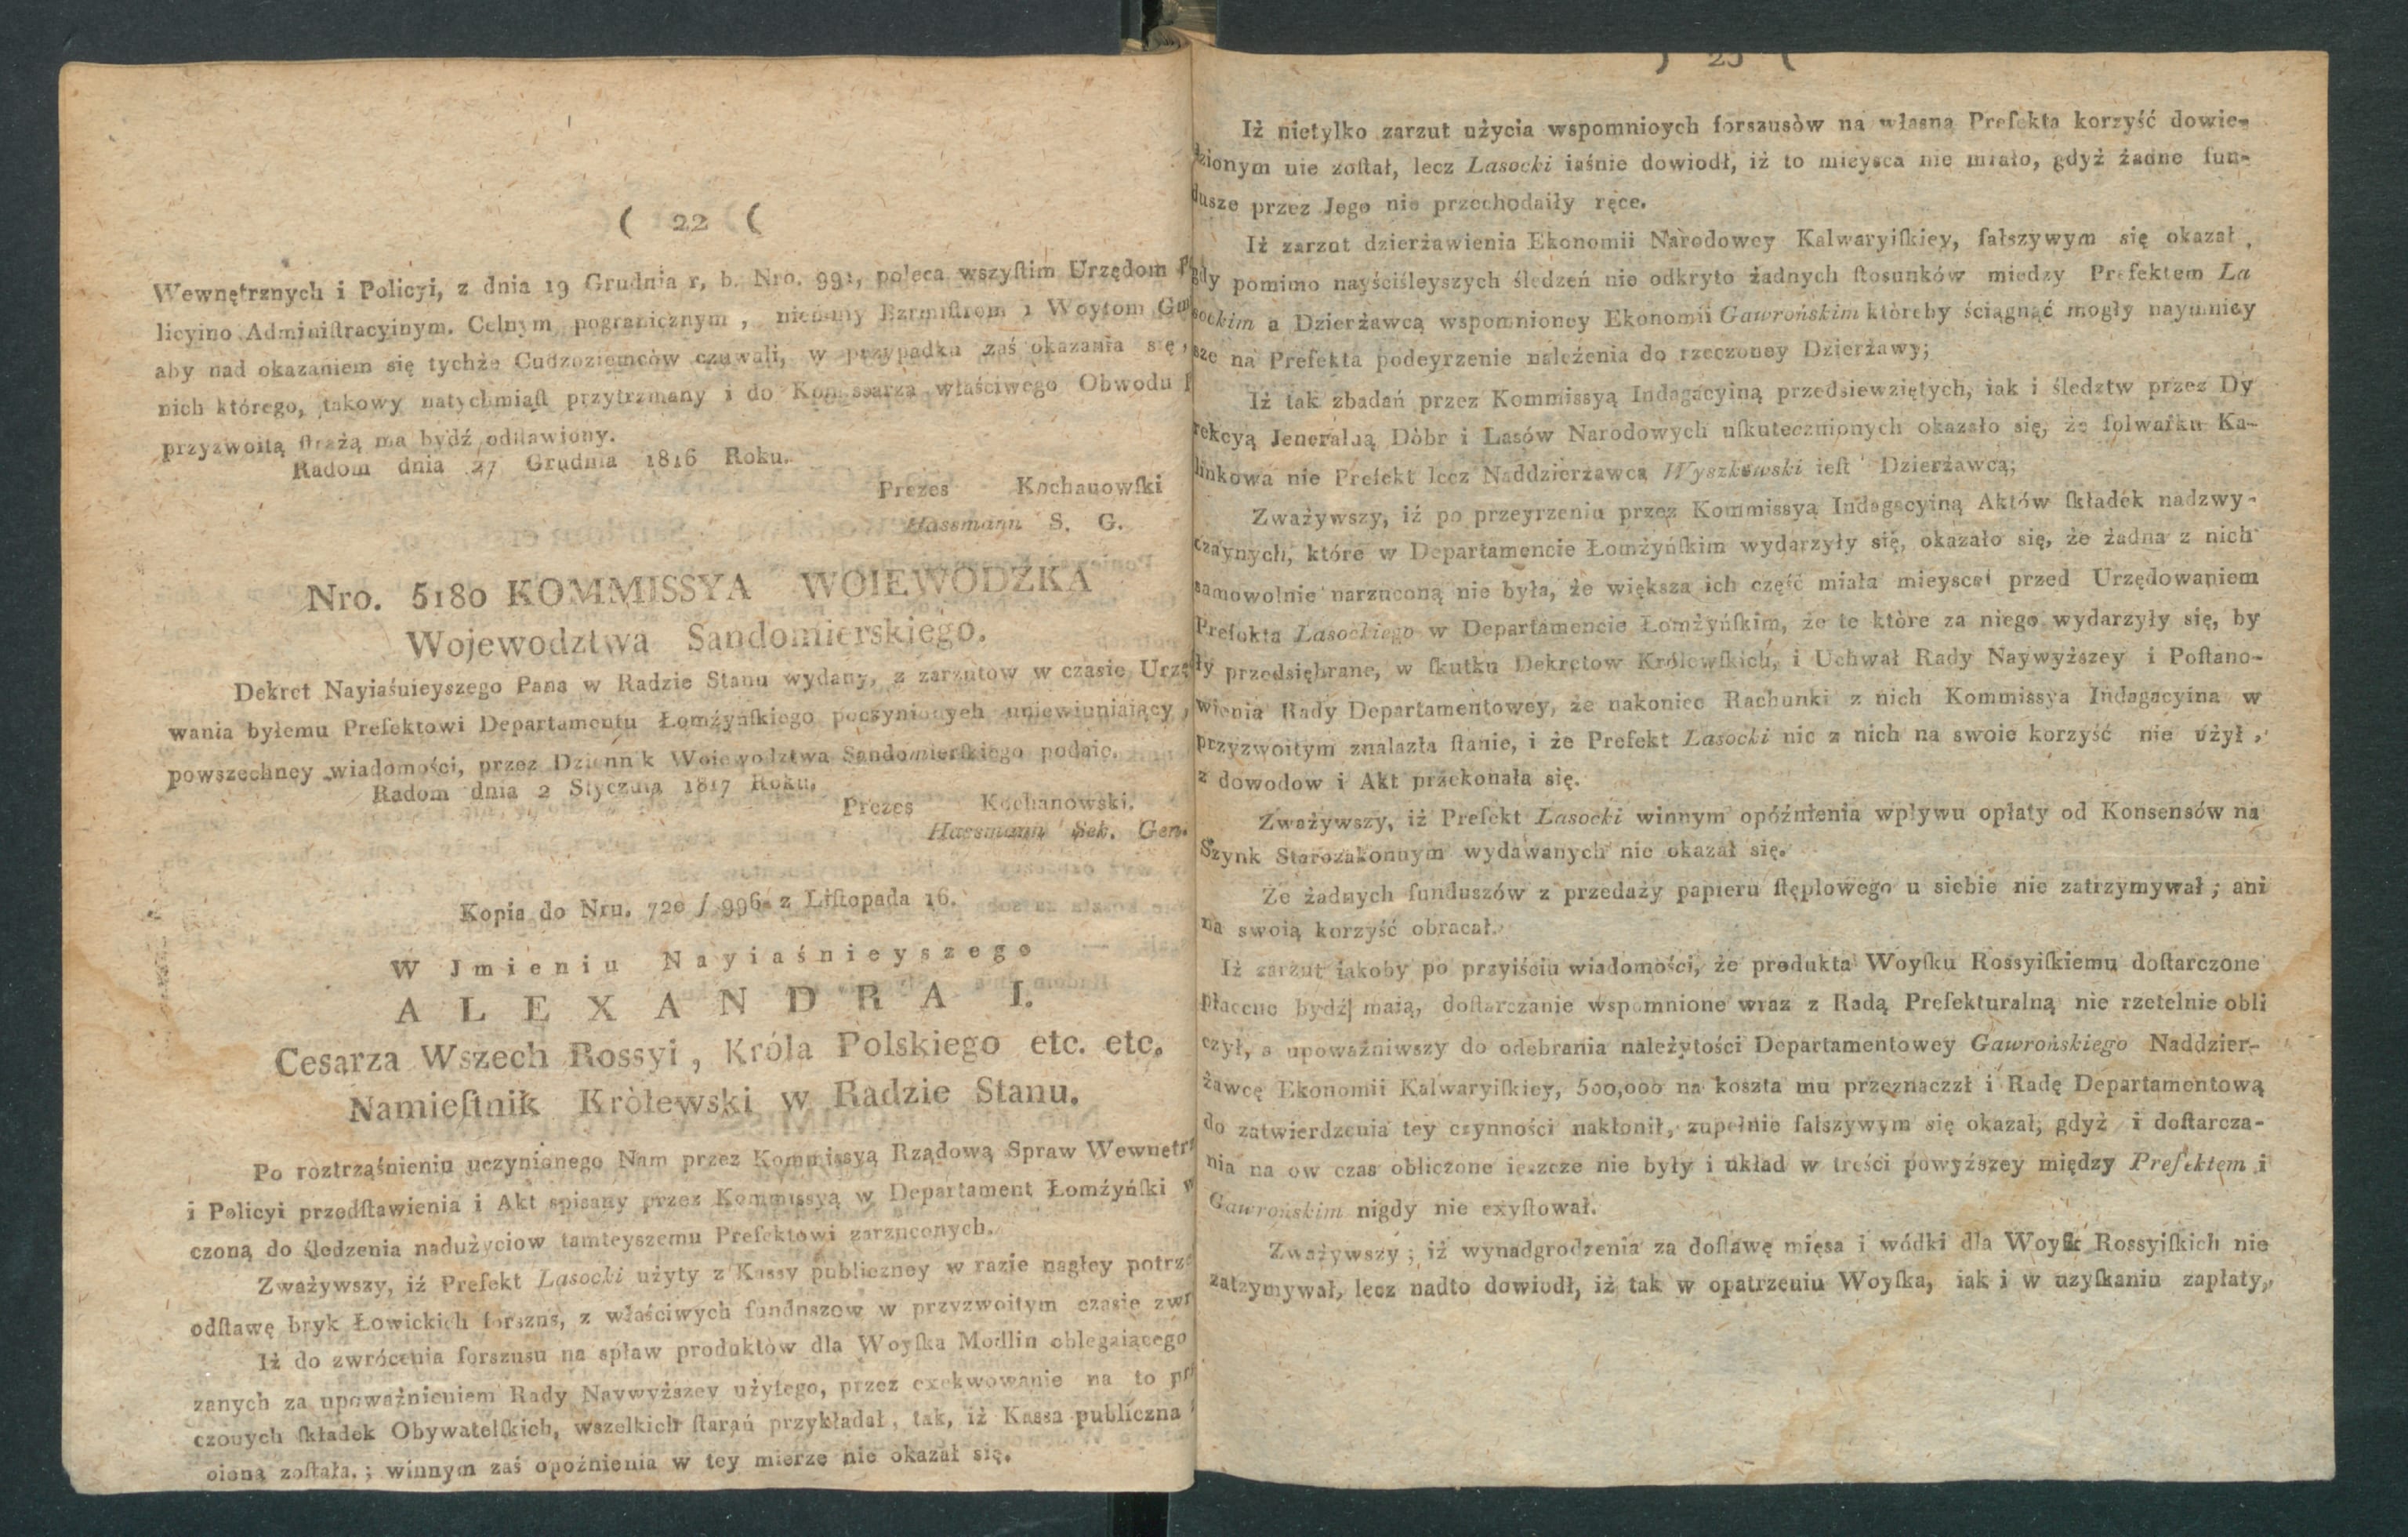 ( 22 (
Wewnętrznych i Policyi, z dnia 19 Grudnia r, b. Nro. 991, poleca wszyſtim Urzędom
licyino Adminiſtracyinym. Celnym pogranicznym, niemniy Bzrmiſtrom i Woytom
aby nad okazaniem się tychże Cudzoziemców czuwali, w przypadku zaś okazania się,
nich którego, takowy natychmiaſt przytrzmany i do Kommissarza właściwego Obwodu
przyzwoitą ſtrażą ma bydź odſtawiony.
Radom dnia 27 Grudnia 1816 Roku.
Prezes Kochanowſki
Hassmann S. G.
Nro. 5180 KOMMISSYA WOIEWODZKA
Wojewodztwa Sandomierskiego.
Dekret Nayiaśnieyszego Pana w Radzie Stanu wydany, z zarzutow w czasie Urzę
wania byłemu Prefektowi Departamentu Łomżyńſkiego poczynionych uniewinniaiący,
powszechney wiadomości, przez Dziennik Woiewodztwa Sandomierſkiego podaie.
Radom dnia 2 Stycznia 1817 Roku.
Prezes Kochanowski.
Hassmann Sek. Gen.
Kopia do Nru. 720 / 996 z Liſtopada 16.
W Jmieniu Nayiaśnieyszego
ALEXANDRA I.
Cesarza Wszech Rossyi, Króla Polskiego etc. etc.
Namieſtnik Królewski w Radzie Stanu.
Po roztrząśnieniu uczynionego Nam przez Kommissyą Rządową Spraw Wewnętr
i Policyi przedſtawienia i Akt spisany przez Kommissyą w Departament Łomżyńſki
czoną do śledzenia nadużyciow tamteyszemu Prefektowi zarzuconych.
Zważywszy, iż Prefekt Lasocki użyty z Kassy publiczney w razie nagłey potrz
odſtawę bryk Łowickich forszus, z właściwych funduszow w przyzwoitym czasie zwr
Iż do zwrócenia forszusu na spław produktów dla Woyſka Modlin oblegaiącego
zanych za upoważnieniem Rady Naywyższey użytego, przez exekwowanie na to
czonych ſkładek Obywatelſkich, wszelkich ſtarań przykładał, tak, iż Kassa publiczna
oioną zoſtała.; winnym zaś opóźnienia w tey mierze nie okazał się.
) 23 (
Iż nietylko zarzut użycia wspomnioych forszusòw na własną Prefekta korzyść dowie-
dzionym nie zoſtał, lecz Lasocki iaśnie dowiodł, iż to mieysca nie miało, gdyż żadne fun-
dusze przez Jego nie przechodaiły ręce.
Iż zarzut dzierżawienia Ekonomii Narodowey Kalwaryiſkiey, fałszywym się okazał,
gdy pomimo nayściśleyszych śledzeń nie odkryto żadnych ſtosunków miedzy Prefektem La
sockim a Dzierżawcą wspomnioney Ekonomii Gawrońskim któreby ściągnąć mogły naymniey
sze na Prefekta podeyrzenie należenia do rzeczoney Dzierżawy;
Iż tak zbadań przez Kommissyą Indagacyiną przedsiewziętych, iak i śledztw przez Dy
rekcyą Jeneralną Dòbr i Lasów Narodowych uſkutecznionych okazało się, że folwarku Ka-
linkowa nie Prefekt lecz Naddzierżawca Wyszkowski ieſt Dzierżawcą;
Zważywszy, iż po przeyrzeniu przez Kommissyą Indagacyiną Aktów ſkładek nadzwy-
czaynych, które w Departamencie Łomżyńſkim wydarzyły się, okazało się, że żadna z nich
samowolnie narzuconą nie była, że większa ich część miała mieysca przed Urzędowaniem
Prefekta Lasockiego w Departamencie Łomżyńſkim, że te które za niego wydarzyły się, by
ły przedsiębrane, w ſkutku Dekretow Królewſkich, i Uchwał Rady Naywyższey i Poſtano-
wienia Rady Departamentowey, że nakoniec Rachunki z nich Kommissya Indagacyina w
przyzwoitym znalazła ſtanie, i że Prefekt Lasocki nic z nich na swoie korzyść nie użył,
z dowodow i Akt przekonała się.
Zważywszy, iż Prefekt Lasocki winnym opóźnienia wpływu opłaty od Konsensów na
Szynk Starozakonnym wydawanych nie okazał się.
Że żadnych funduszów z przedaży papieru ſtęplowego u siebie nie zatrzymywał; ani
na swoią korzyść obracał.
Iż zarzut iakoby po przyiściu wiadomości, że produkta Woyſku Rossyiſkiemu doſtarczone
płacene bydź maią, doſtarczanie wspomnione wraz z Radą Prefekturalną nie rzetelnie obli
czył, a upoważniwszy do odebrania należytości Departamentowey Gawrońskiego Naddzier-
żawcę Ekonomii Kalwaryiſkiey, 500,000 na koszta mu przeznaczzł i Radę Departamentową
do zatwierdzenia tey czynności nakłonił, zupełnie fałszywym się okazał, gdyż i doſtarcza-
nia na ow czas obliczone ieszcze nie były i układ w treści powyższey między Prefektem i
Gawrońskim nigdy nie exyſtował.
Zważywszy; iż wynadgrodzenia za doſtawę mięsa i wódki dla Woyſk Rossyiſkich nie
zatzymywał, lecz nadto dowiodł, iż tak w opatrzeniu Woyſka, iak i w uzyſkaniu zapłaty,